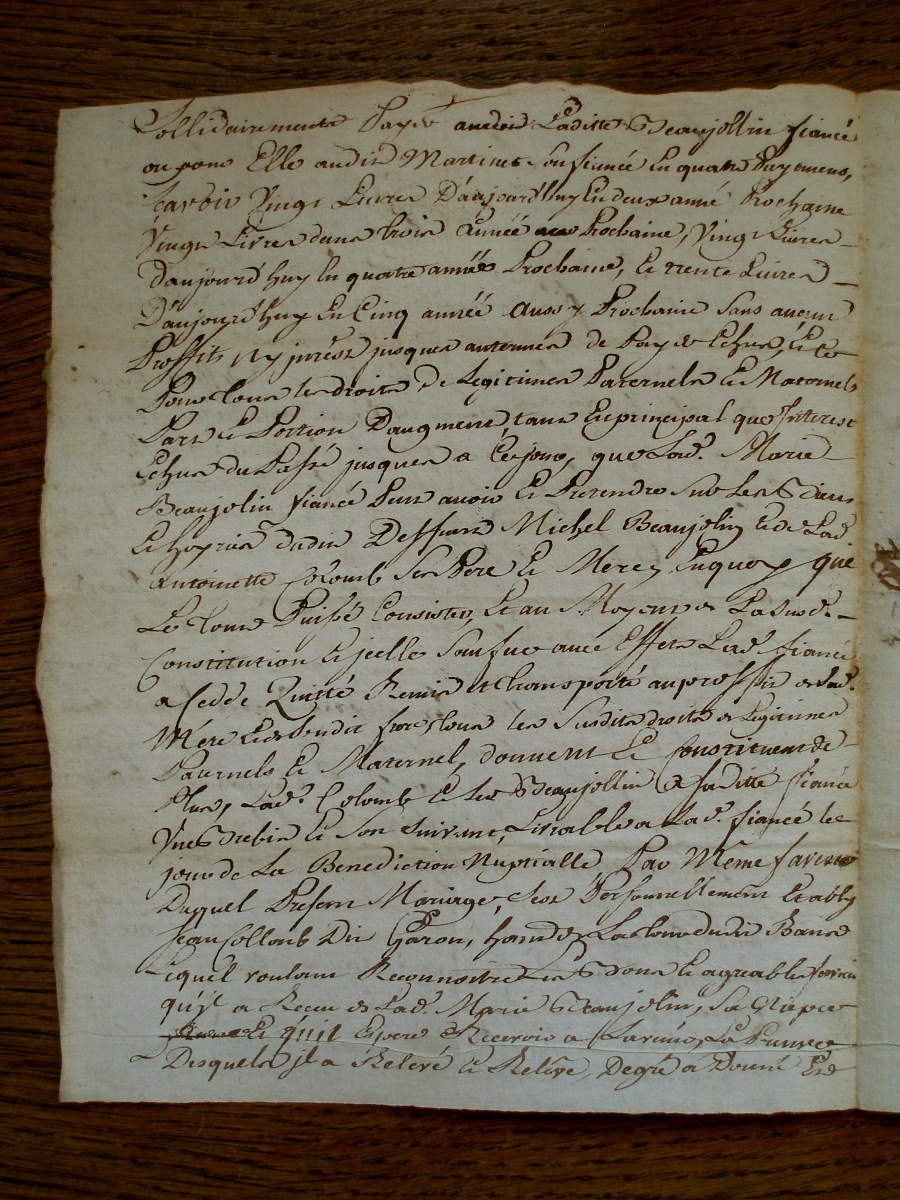 Sollidairement Payér audit Laditte Beaujollin fiancé
ou pour Elle audit Martinet Son fiancée En quatre Payemens,
Scavoir Vingt Livres D'aujourd'huy En deux anné Prochaine
Vingt Livres dans trois année Prochaine, Vingt Livres
Daujourd'huy En quatre année Prochaine, Et trente Livres
D'aujourd'huy En Cinq année Aussy Prochaine Sans aucun
Proffits ny jnrèst jusques autermes de Payer Echus, Et ce
Pour tous les droits De Legitimes Paternels Et Maternels
Part Et Portion Daugment, tant En principal que Interest
Echus du Passé jusques a Cejour, que Lad. Marie
Beaujolin fiancé Peut avoir Et Pretendre Sur Les Biens
Et hoyries dudit Deffunt Michel Beaujolin Et de Lad
Antoinette Colomb Ses Pere Et Mere, Enquoy que
Le tout Puisse Consister, Et au Moyen de La Susd.
Constitution Et jcelle Sortue avec Effets Lad. fiancé
a Cedé Quitté Remis et transporté au proffit de Sad.
Mére Et desdit frere, tous les Susdits droits de Legitimes
Paternels Et Maternel, donnent Et Constituent de
Plus, Lad. Colomb Et Beaujollin a Laditte fiancé
Et Son Suivant, Livrable a Lad. fiancé le
jour de La Benediction Nuptialle Par Même faveur
Duquel Present Mariage, Personnellement Etably
Jean Collomb Dit Garon, habit
Lequel voulant Reconnoitre Les Bons Et agreables Services
qu'jl a Receu de Lad. Marie Beaujolin, Sa Niepce
Et quil Espere Recevoir a Lavenir, La Preuve
Desquels jl a Relevé Et Reléve, Degré a Donné Et